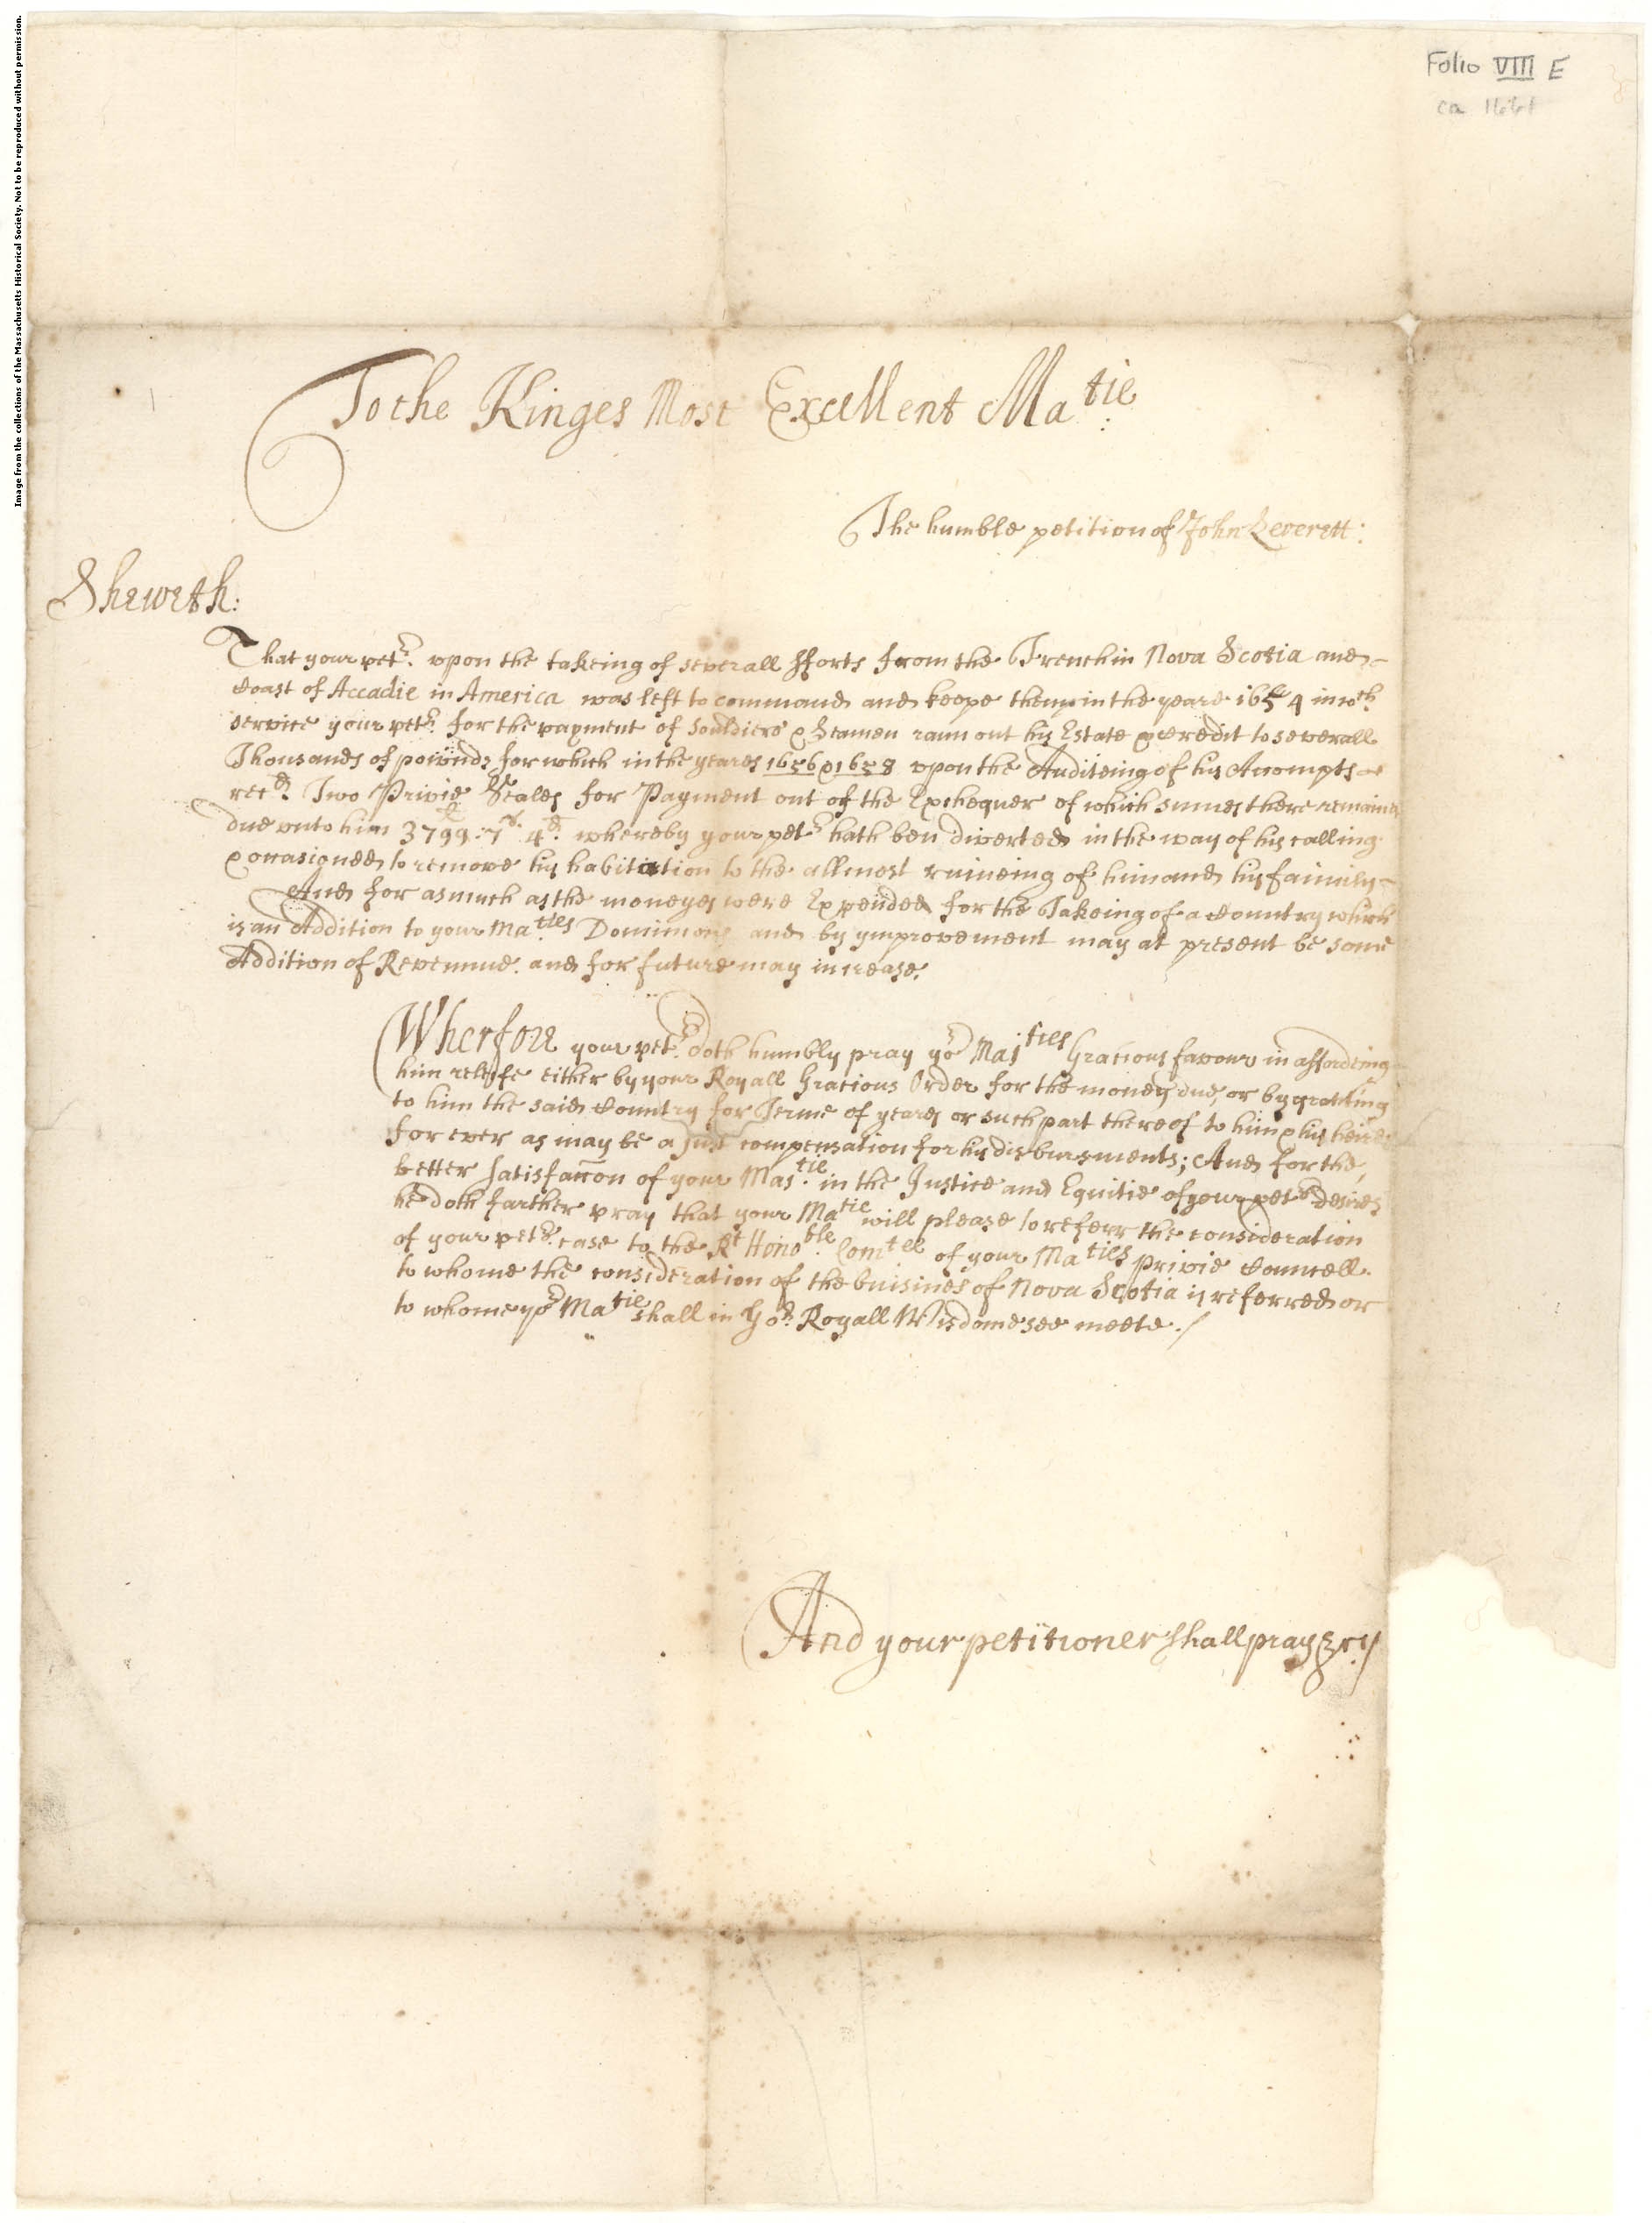 Image from the collections of the Massachusetts Historical Society. Not to be reproduced without permission.
Folio VIII E
ca 1661
To the Kinges Most Excellent Ma^tie:
The humble petition of John Leverett:
Sheweth:
That your pet^r. vpon the takeing of severall fforts from the French in Nova Scotia and
Coast of Accadie in America was left to command and keepe them in the yeare 1654 in w^ch
service your pet^r. for the payment of Souldiers & Seamen rann out his Estate & Credit to severall
Thousands of pownds for which in the yeares 1656 & 1658 vpon the Auditeing of his Accompts he
rec^d. Two Privie Seales for Payment out of the Exchequer of which summes there remaines
due vnto him 3799^l: 7^s. 4^d. whereby your pet^r hath ben diverted in the way of his calling
& occasioned to remove his habitation to the allmost ruineing of him and his family
And for as much as the moneyes were Expended for the Takeing of a Country which
is an Addition to your Ma^ties Dominions and by ymprovement may at present be some
Addition of Revennue. and for future may increase.
Wherfore your pet^r. doth humbly pray yo^r Maj^ties Gracious favour in affordeing
him releife either by your Royall Gracious Order for the moneys due, or by granting
to him the said Country for Terme of yeares or such part thereof to him & his heires
for ever as may be a just compensation for his disbursments; And for the
better satisfaccon of your Mas^tie. in the Justice and Equitie of your pet^rs desires
he doth farther pray that your Ma^tie will please to referr the consideration
of your pet^rs. case to the R^t Hono^ble. Com^tee of your Ma^ties Privie Councell.
to whome the consideration of the buisines of Nova Scotia is referred or
to whome yo^r Ma^tie shall in yo^r. Royall Wisdome see meete./
And your petitioner shall pray &c:/